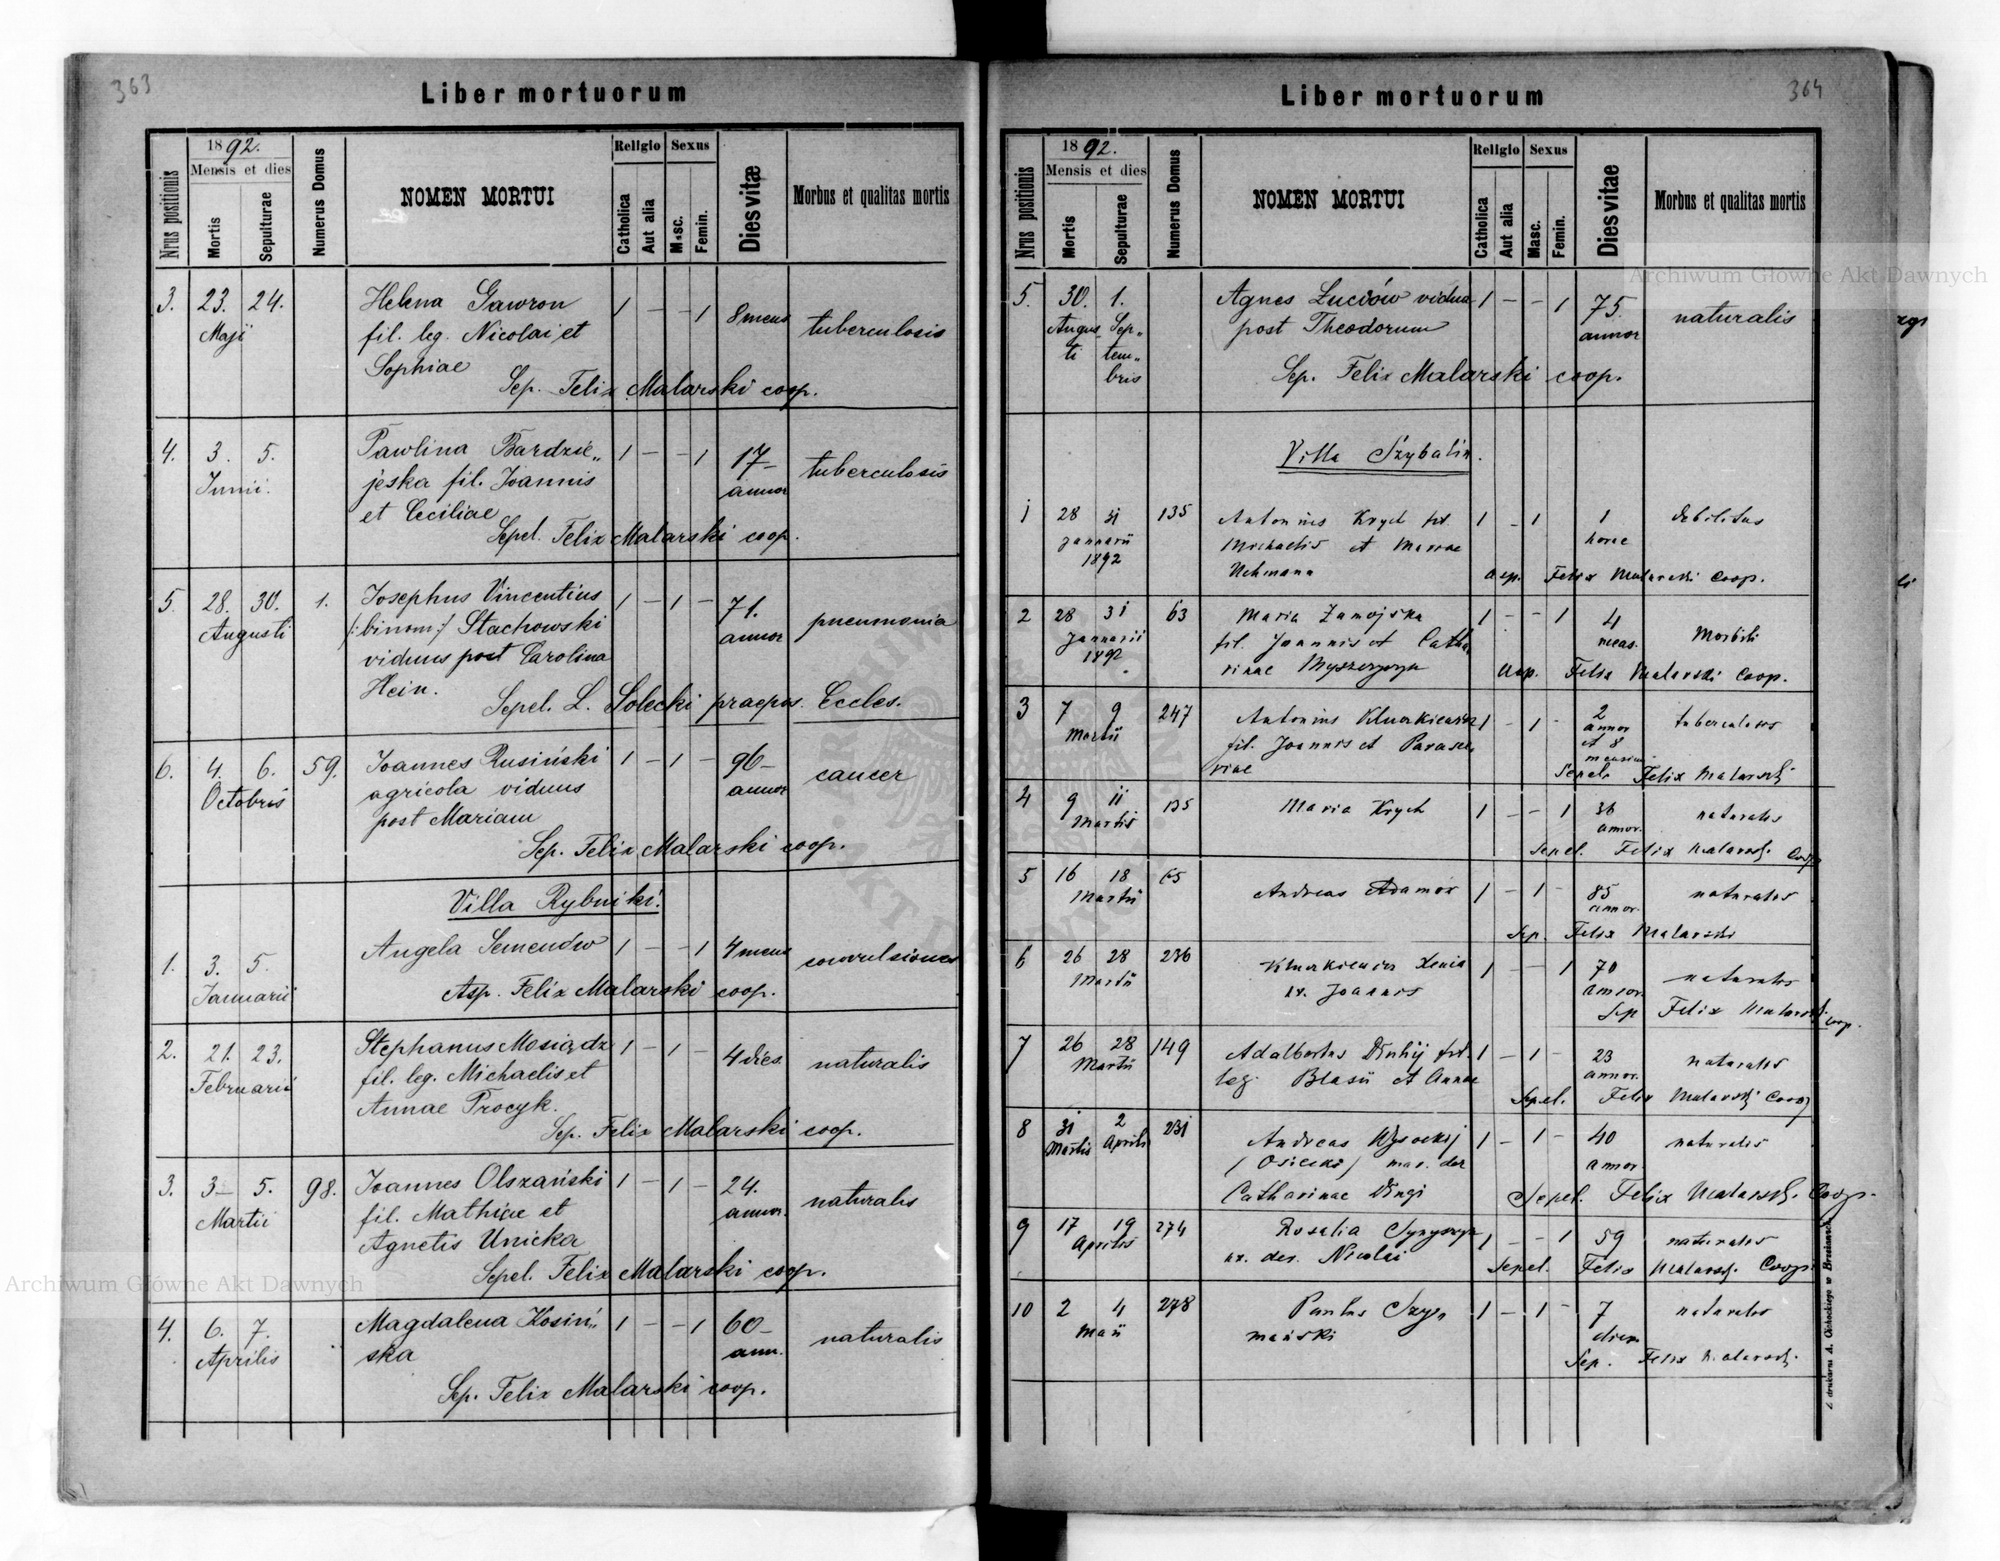 363
Liber mortuorum
Nrus positionis
1892.
Mensis et dies
Mortis
Sepulturae
Numerus Domus
NOMEN MORTUI
Religio
Catholica
Aut alia
Sexus
Masc.
Femin.
Dies vitæ
Morbus et qualitas mortis
3. 23. 24. Helena Gawron 1 - - 1 8 mens tuberculosis
Maji fil. leg. Nicolai et
Sophiae
Sep. Felix Malarski coop.
4. 3. 5. Pawlina Bardzie„ 1 - - 1 17- tuberculosis
Junii. jeska fil. Joannis annor
et Ceciliae
Sepel. Felix Malarski coop.
5. 28. 30. 1. Josephus Vincentius 1 - 1 - 71. pneumonia
Augusti /:binom:/ Stachowski annor
viduus post Carolina
Hein.
Sepel. L. Solecki praepos. Eccles.
6. 4. 6. 59. Joannes Rusiński 1 - 1 - 96- cancer
Octobris agricola viduus annor
post Mariam
Sep. Felix Malarski coop.
Villa Rybniki.
1. 3. 5. Angela Semendiw 1 - - 1 4 mens convulsiones
Januarii
Asp. Felix Malarski coop.
2. 21. 23. Stephanus Mosiądz 1 - 1 - 4 dies naturalis
Februarii fil. leg. Michaelis et
Annae Procyk.
Sep. Felix Malarski coop.
3. 3- 5. 98. Joannes Olszański 1 - 1 - 24. naturalis
Martii fil. Mathiae et annor.
Agnetis Unicka
Sepel. Felix Malarski coop.
4. 6. 7. Magdalena Kosiń„ 1 - - 1 60- naturalis
Aprilis ska ann.
Sep. Felix Malarski coop.
Archiwum Główne Akt Dawnych
364
Liber mortuorum
Nrus positionis
1892.
Mensis et dies
Mortis
Sepulturae
Numerus Domus
NOMEN MORTUI
Religio
Catholica
Aut alia
Sexus
Masc.
Femin.
Dies vitae
Morbus et qualitas mortis
Archiwum Główne Akt Dawnych
5. 30. 1. Agnes Łuciów vidua 1 - - 1 75. naturalis
Augus„ Sep„ post Theodorum annor
ti tem„
bris
Sep. Felix Malarski coop.
Villa Szybalin.
1 28 31 135 Antonius Krych 1 - 1 1 debilitas
Januarii Michaelis et Mariae horae
1892
Felix Malarski Coop.
2 28 31 63 Maria Zamojska 1 - - 1 4 Morbili
Januarii fil. Joannis et Catha
1892 rinae
Felix Malarski Coop.
3 7 9 247 Antonius 1 - 1 - 2
Martii fil. Joannis et Parasce„ annor
viae et 8
Sepel. Felix Malarski
4 9 11 135 Maria Krych 1 - - 1 36 naturalis
Martis annor.
Sepel. Felix Malarski Coop
5 16 18 65 Andreas Adamów 1 - 1 - 85 naturalis
Martii annor.
Sep. Felix Malarski
6 26 28 236 Xenia 1 - - 1 70 naturalis
Martii Joannis annor.
Sep Felix Malarski coop.
7 26 28 149 Adalbertus 1 - 1 - 23 naturalis
Martii leg. Blasii et Annae annor.
Sepel. Felix Malarski Coop
8 31 2 231 Andreas Wysockij 1 - 1 - 40 naturalis
Martis Aprilis / Osiecki / annor.
Catharinae
Sepel. Felix Malarski. Coop.
9 17 19 274 Rosalia 1 - - 1 59 naturalis
Aprilis Nicolai
Sepel. Felix Malarski. Coop.
10 2 4 278 Paulus Szy„ 1 - 1 - 7 naturalis
Maii mański
Sep. Felix Malarski.
Z drukarni A. Cichockiego w Brzeżanach